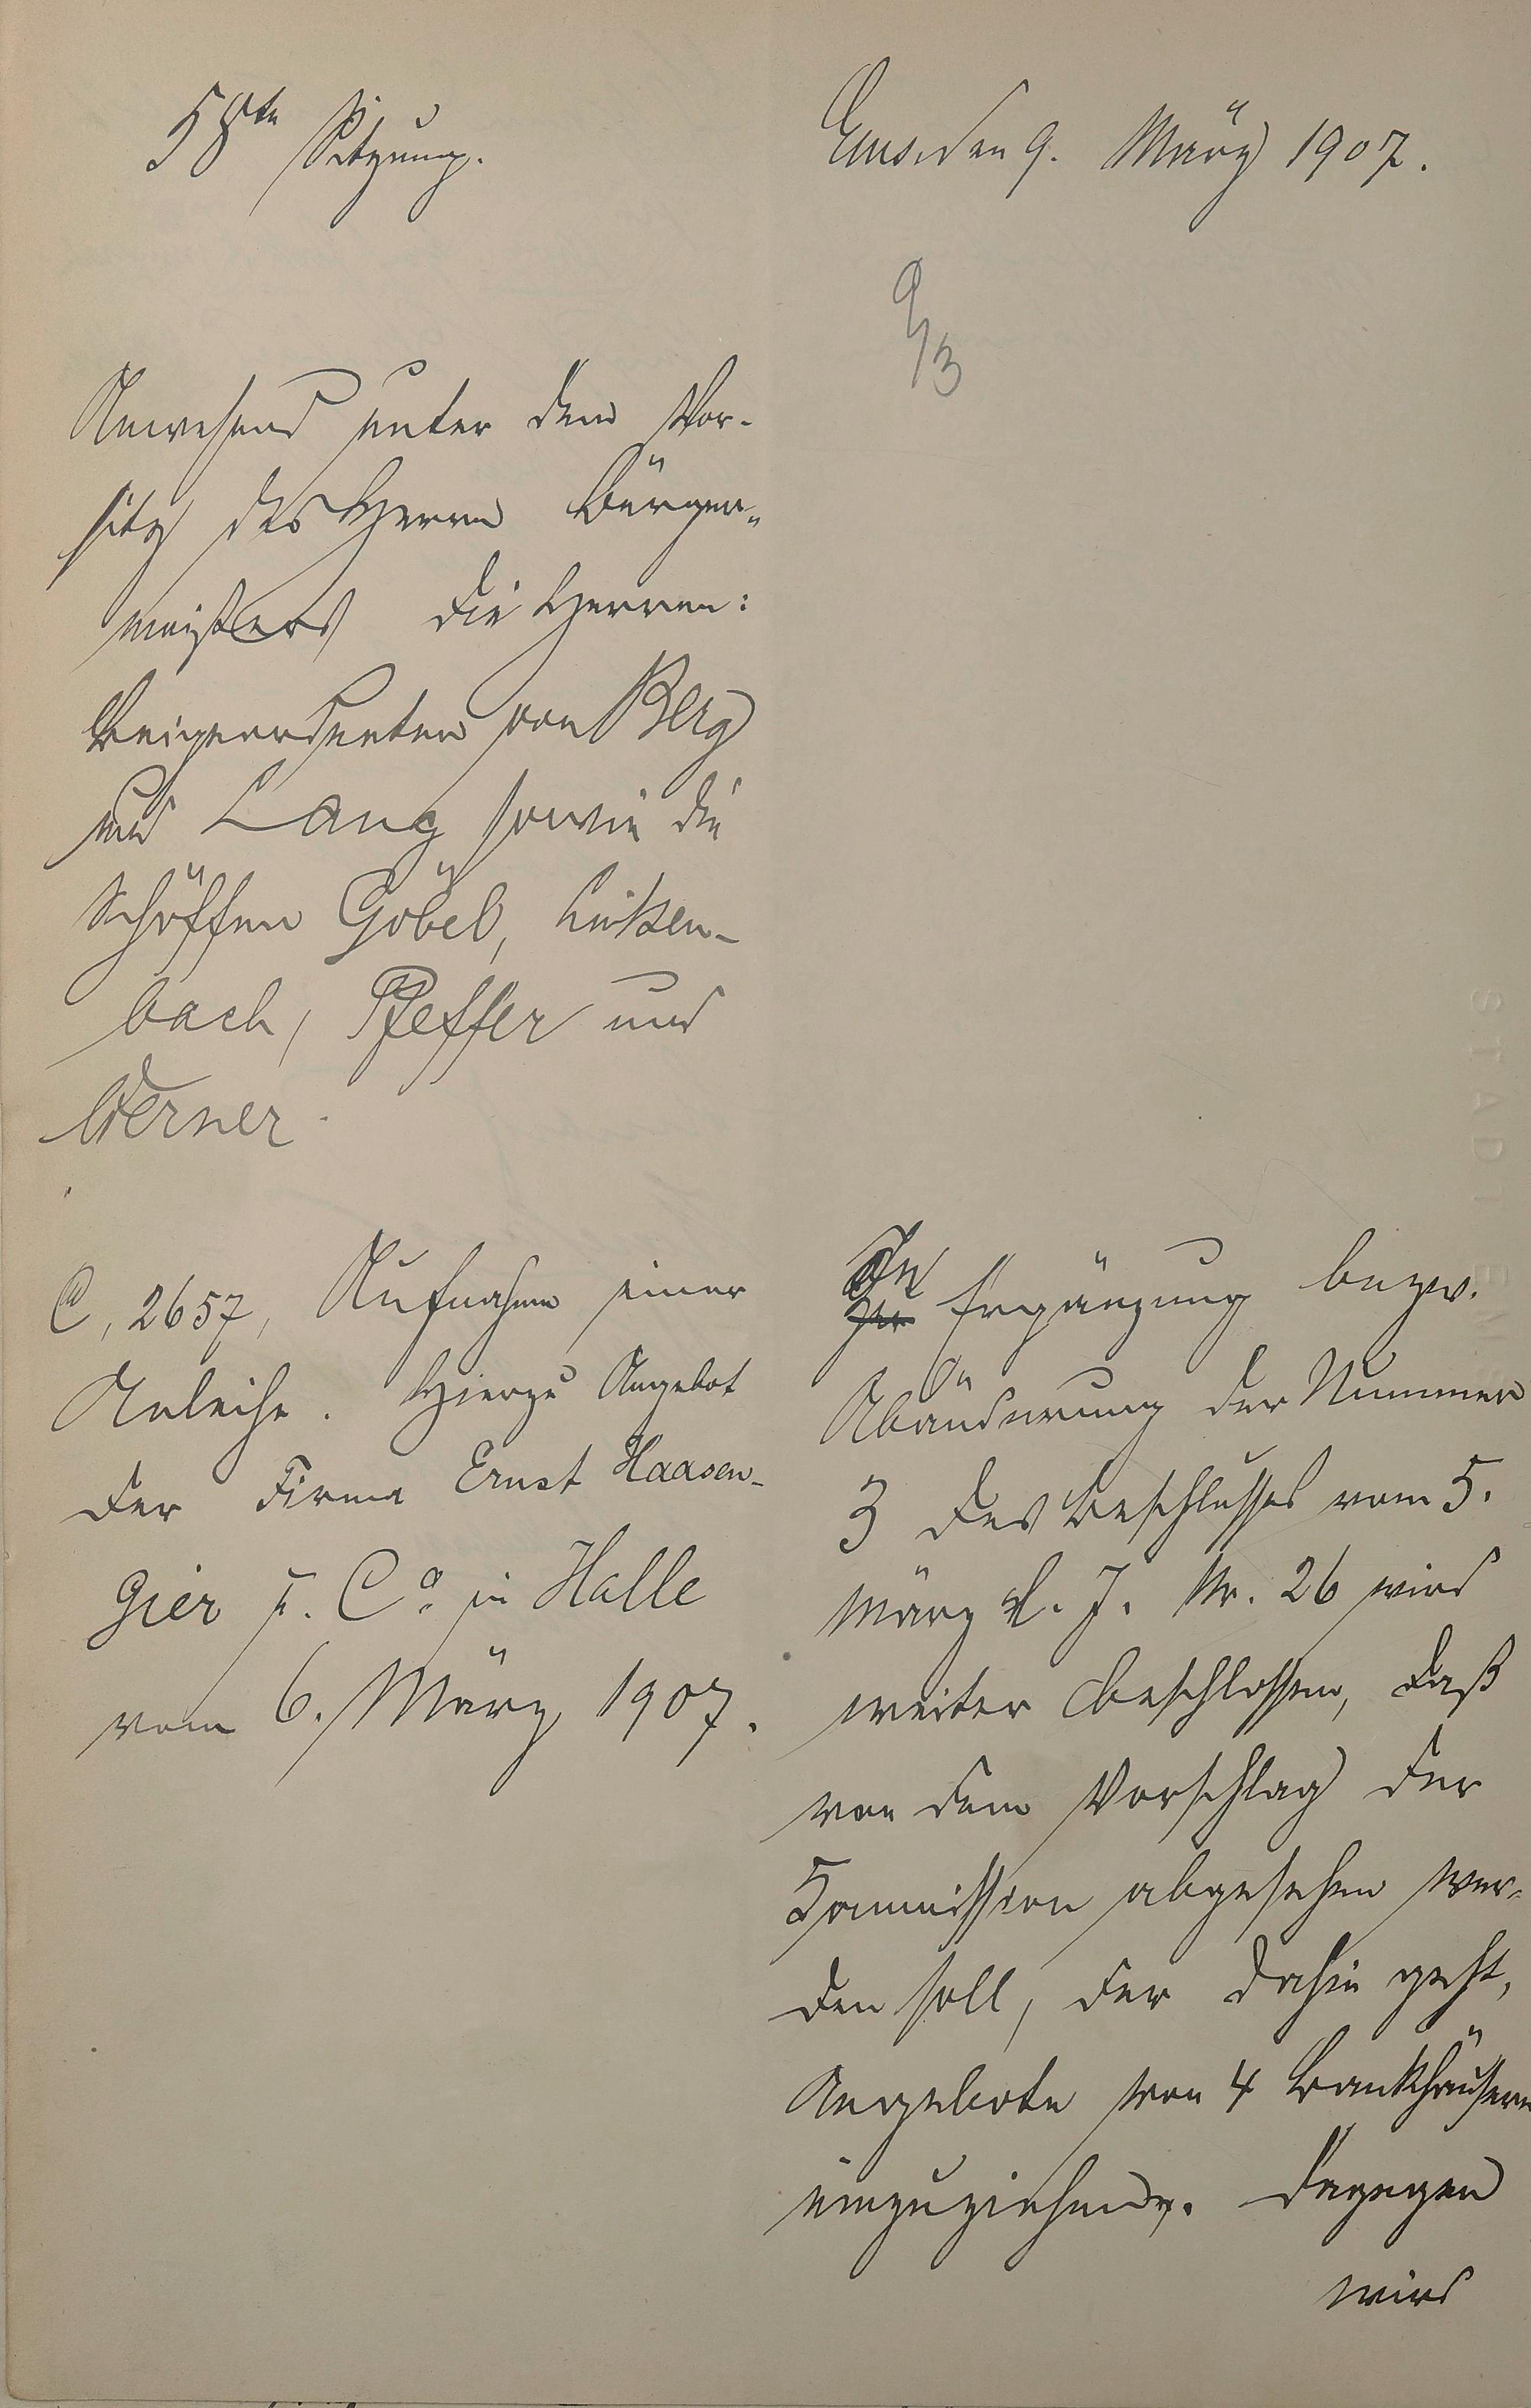 58te Sitzung.
Ems, den 9. März 1907.
9/3
Anwesend unter dem Vor-
sitz des Herrn Bürger-
meisters die Herren:
Beigeordneten von Berg
und Lang sowie die
Schöffen Göbel, Linken-
bach, Pfeffer und
Werner.
C, 2657, Aufnahme einer
Anleihe. Hierzu Angebot
der Firma Ernst Haasen-
gier u. Co. in Halle
vom 6. März 1907.
In Ergänzung bezw.
Abänderung der Nummer
3 des Beschlusses vom 5.
März d. J. Nr. 26 wird
weiter beschlossen, daß
von dem Vorschlag der
Kommission abgesehen wer-
den soll, der dahin geht,
Angebote von 4 Bankhäusern
einzuziehen. Dagegen
wird